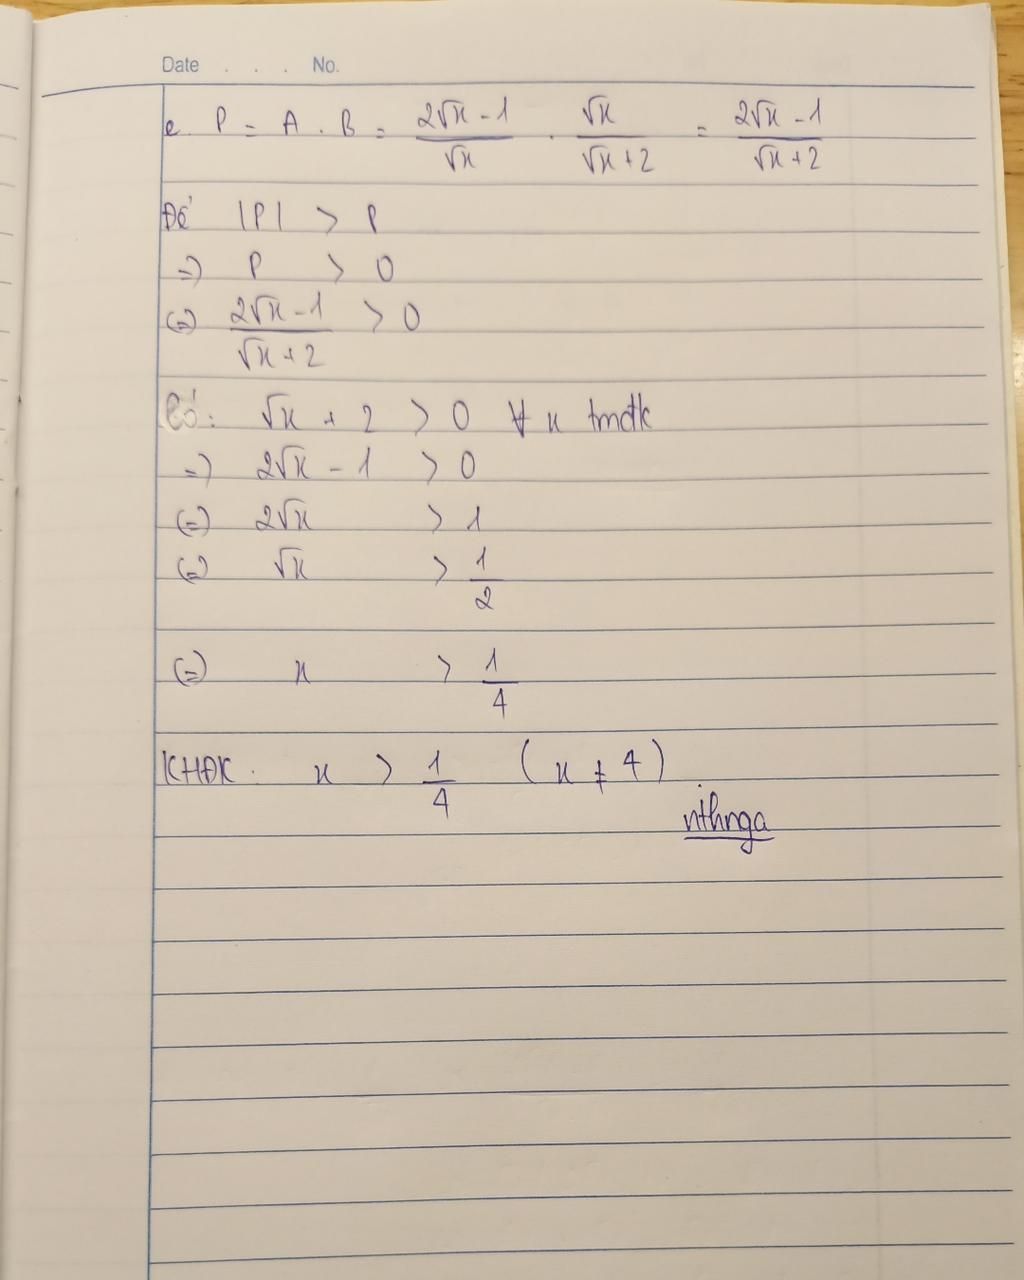 Date . . . No.
c. P = A . B = \frac{2\sqrt{x} - 1}{\sqrt{x}} . \frac{\sqrt{x}}{\sqrt{x} + 2} = \frac{2\sqrt{x} - 1}{\sqrt{x} + 2}
Để |P| > P
=) P > 0
(=) \frac{2\sqrt{x} - 1}{\sqrt{x} + 2} > 0
Có: \sqrt{x} + 2 > 0 ∀ x tmđk
=) 2\sqrt{x} - 1 > 0
(=) 2\sqrt{x} > 1
(=) \sqrt{x} > \frac{1}{2}
(=) x > \frac{1}{4}
KHĐK: x > \frac{1}{4} (x ≠ 4)
nthnga